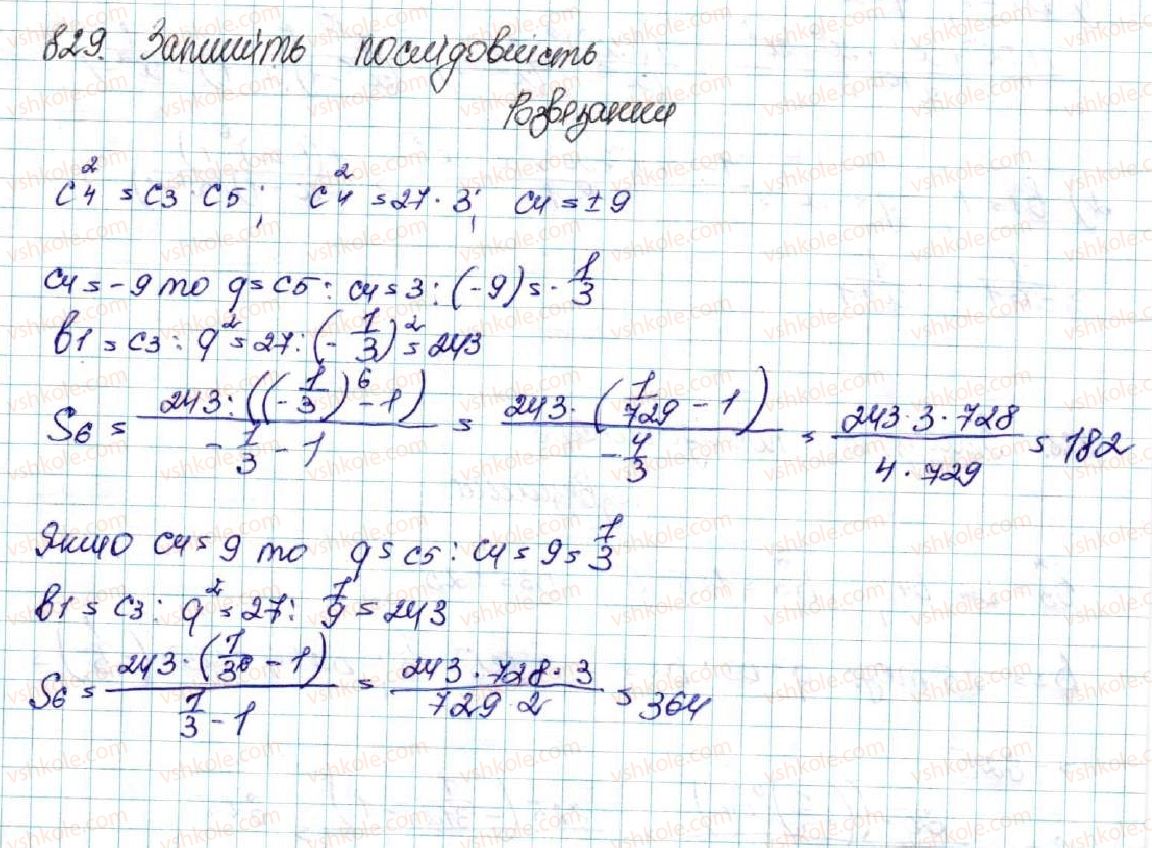 829. Запишіть послідовність
Розвязання
c₄² = c₃ · c₅; c₄² = 27 · 3; c₄ = ±9
c₄ = -9 то q = c₅ : c₄ = 3 : (-9) = -1/3
b₁ = c₃ : q² = 27 : (-1/3)² = 243
S₆ = (243 : ((-1/3)⁶ - 1)) / (-1/3 - 1) = (243 · (1/729 - 1)) / (-4/3) = (243 · 3 · 728) / (4 · 729) = 182
Якщо c₄ = 9 то q = c₅ : c₄ = 9 = 1/3
b₁ = c₃ : q² = 27 : 1/9 = 243
S₆ = (243 · (1/3⁶ - 1)) / (1/3 - 1) = (243 · 728 · 3) / (729 · 2) = 364